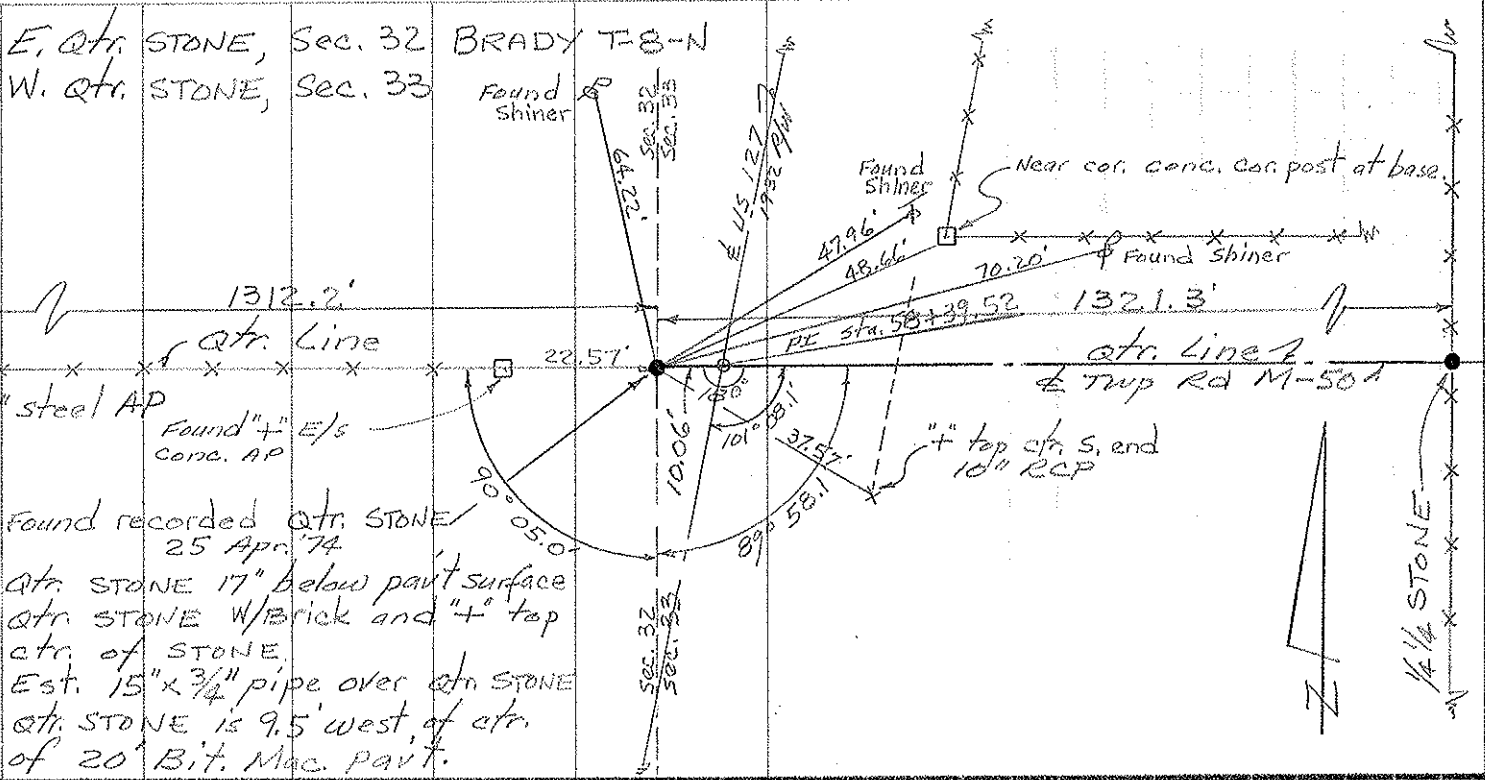 E. Qtr. STONE, Sec. 32 BRADY T-8-N
W. Qtr. STONE, Sec. 33
Found
Shiner
64.22'
Sec. 32
Sec. 33
℄ US 127
1932 R/W
Found
Shiner
Near cor. conc. cor. post at base.
47.96'
48.66'
70.20'
Found Shiner
1312.2'
1321.3'
Qtr. Line
22.57'
PI Sta. 58+39.52
Qtr. Line
℄ Twp Rd M-50
" steel AP
Found "+" E/s
Conc. AP
180°
101° 08.1'
37.57'
10.06'
"+" top ctr. S. end
10" RCP
90° 05.0'
89° 58.1
Found recorded Qtr. STONE
25 Apr. '74
Qtr. STONE 17" below pav't surface
Qtr. STONE W/Brick and "+" top
ctr. of STONE
Est. 15" x 3/4" pipe over Qtr. STONE
Qtr. STONE is 9.5' west of ctr.
of 20' Bit. Mac. Pav't.
Sec. 32
Sec. 33
N
1/4 1/4 STONE